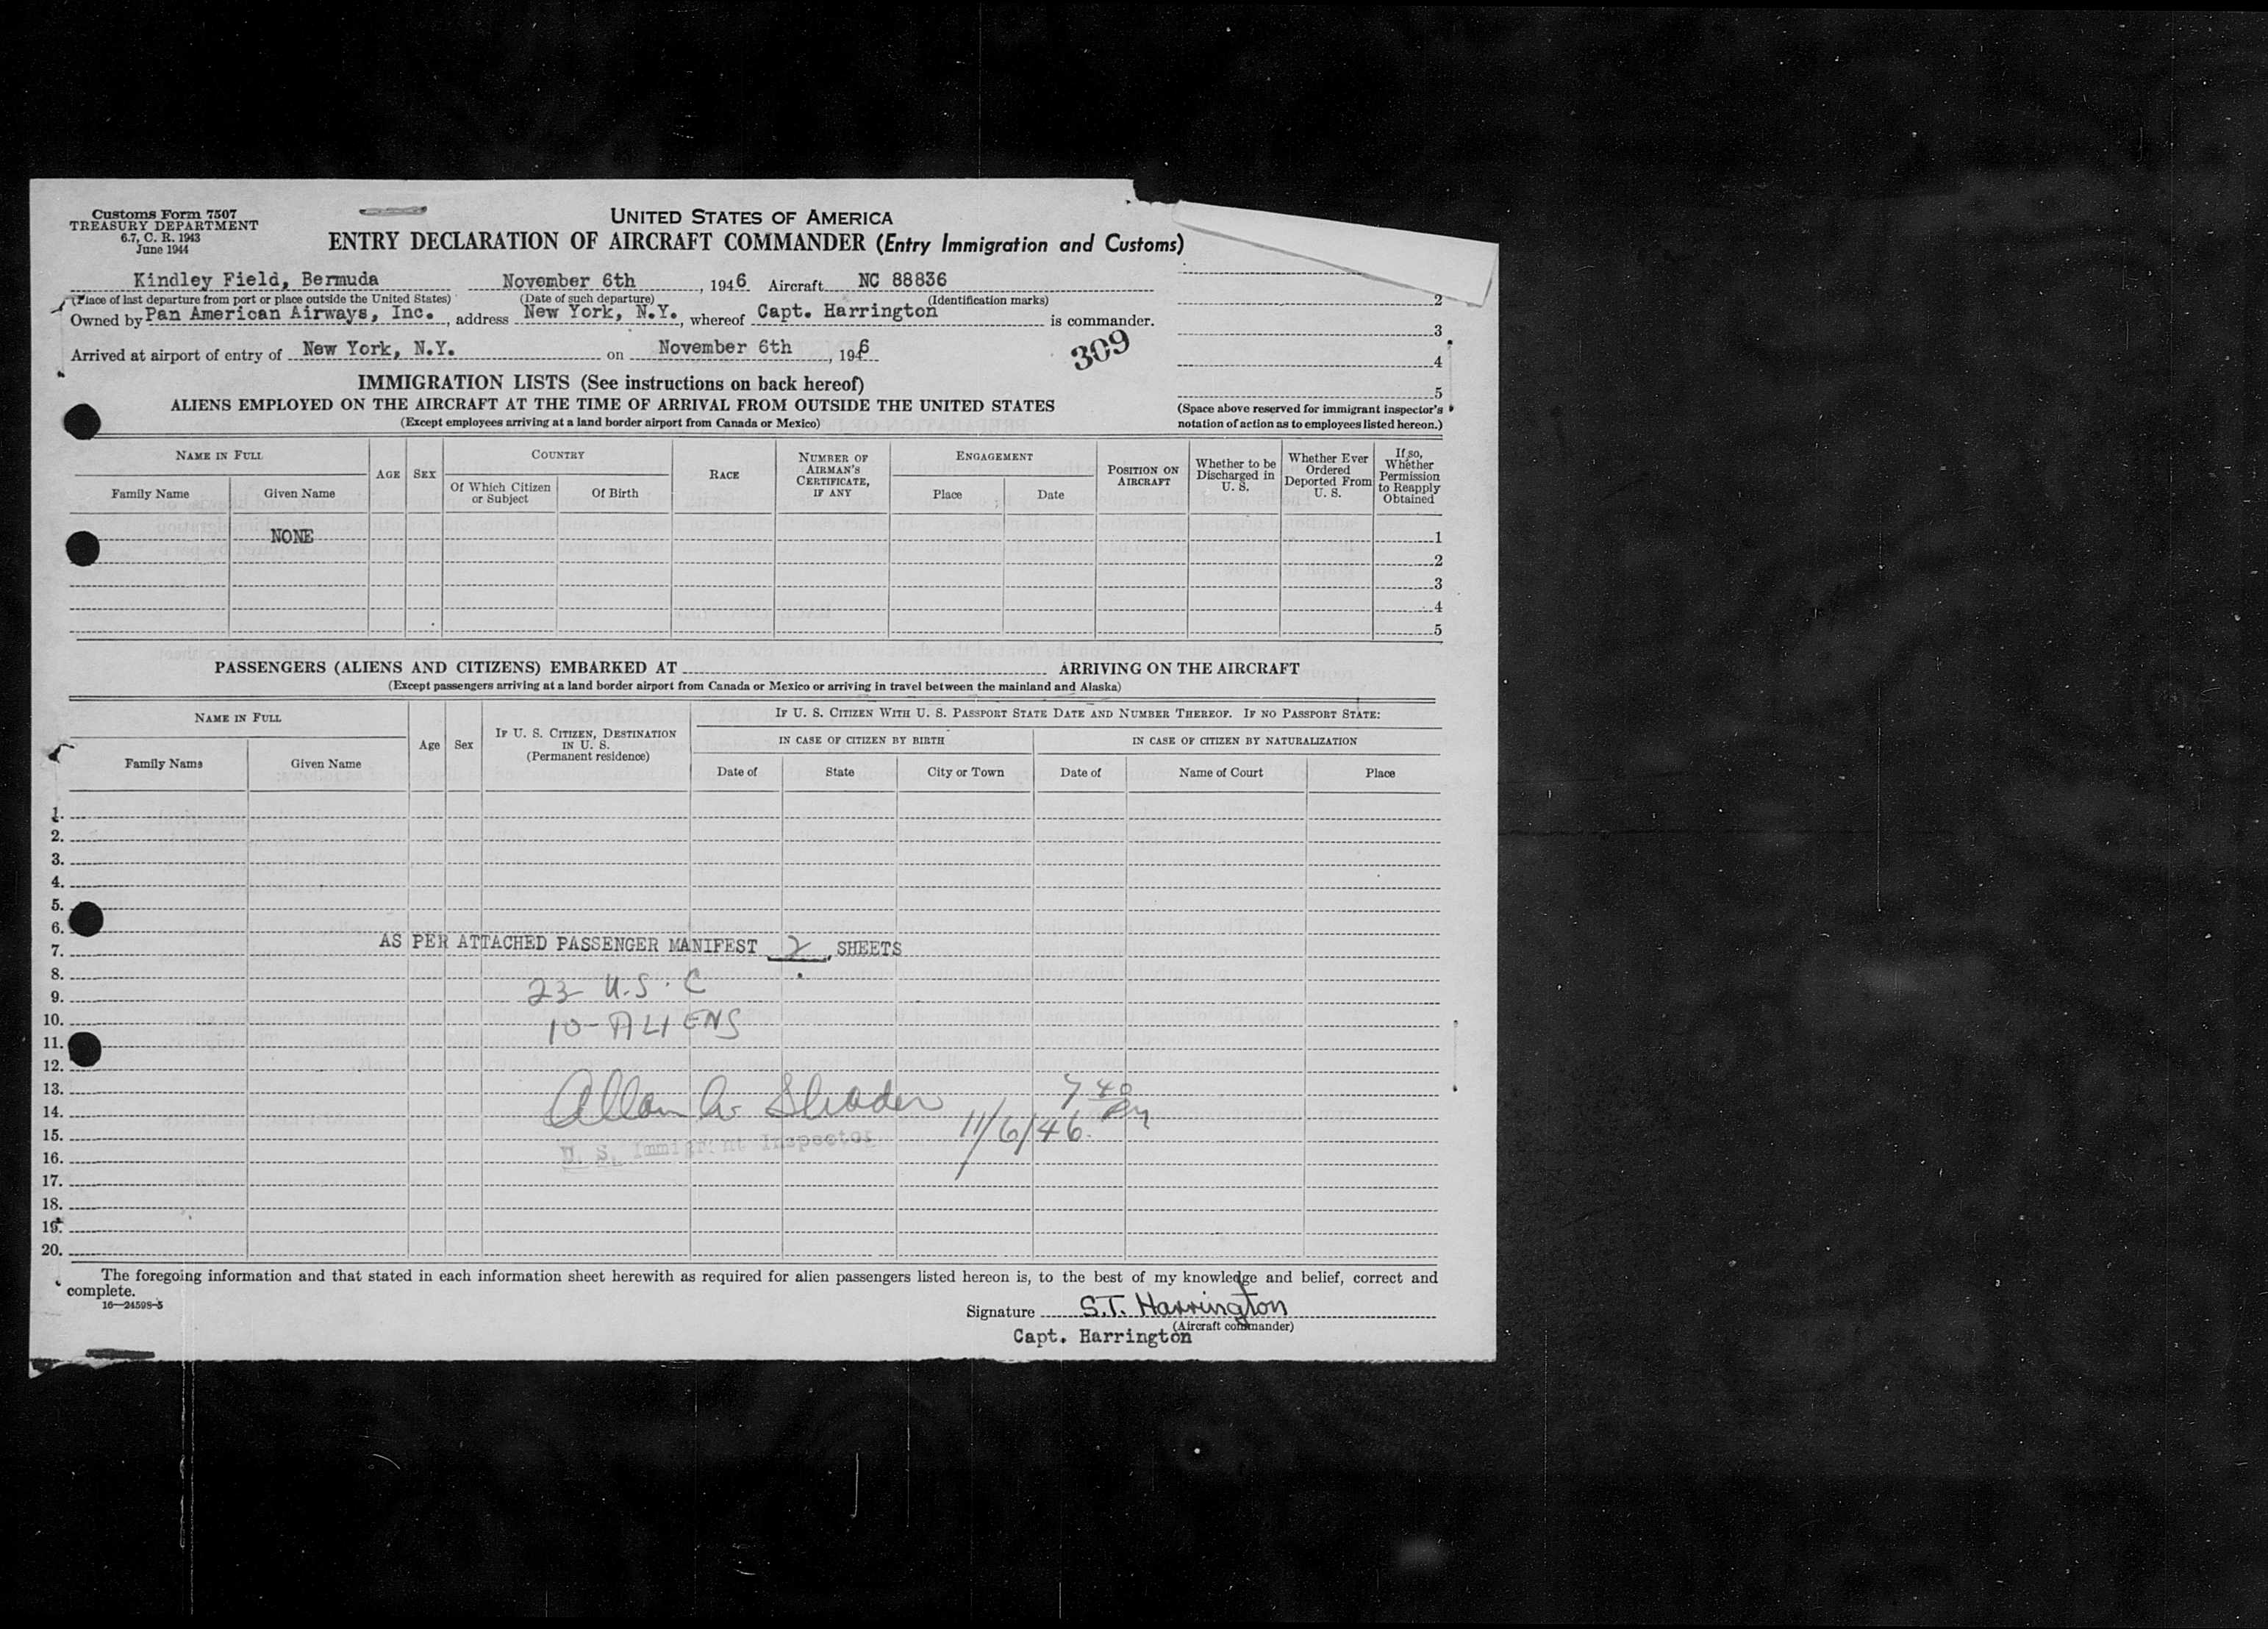 Customs Form 7507
TREASURY DEPARTMENT
6.7, C. R. 1943
June 1944
UNITED STATES OF AMERICA
ENTRY DECLARATION OF AIRCRAFT COMMANDER (Entry Immigration and Customs)
Kindley Field, Bermuda November 6th, 1946 Aircraft NC 88836
(Place of last departure from port or place outside the United States) (Date of such departure) (Identification marks)
Owned by Pan American Airways, Inc., address New York, N.Y., whereof Capt. Harrington is commander.
Arrived at airport of entry of New York, N.Y. on November 6th, 1946
309
2
3
4
5
(Space above reserved for immigrant inspector's notation of action as to employees listed hereon.)
IMMIGRATION LISTS (See instructions on back hereof)
ALIENS EMPLOYED ON THE AIRCRAFT AT THE TIME OF ARRIVAL FROM OUTSIDE THE UNITED STATES
(Except employees arriving at a land border airport from Canada or Mexico)
NAME IN FULL
Family Name Given Name
AGE
SEX
COUNTRY
Of Which Citizen or Subject
Of Birth
RACE
NUMBER OF AIRMAN'S CERTIFICATE, IF ANY
ENGAGEMENT
Place Date
POSITION ON AIRCRAFT
Whether to be Discharged in U. S.
Whether Ever Ordered Deported From U. S.
If so, Whether Permission to Reapply Obtained
NONE 1
2
3
4
5
PASSENGERS (ALIENS AND CITIZENS) EMBARKED AT ARRIVING ON THE AIRCRAFT
(Except passengers arriving at a land border airport from Canada or Mexico or arriving in travel between the mainland and Alaska)
NAME IN FULL
Family Name Given Name
Age
Sex
IF U. S. CITIZEN, DESTINATION IN U. S.
(Permanent residence)
IF U. S. CITIZEN WITH U. S. PASSPORT STATE DATE AND NUMBER THEREOF. IF NO PASSPORT STATE:
IN CASE OF CITIZEN BY BIRTH IN CASE OF CITIZEN BY NATURALIZATION
Date of State City or Town Date of Name of Court Place
1.
2.
3.
4.
5.
6.
7. AS PER ATTACHED PASSENGER MANIFEST 2 SHEETS
8.
9. 23 U.S.C
10. 10-ALIENS
11.
12.
13. 7 40 PM
14. Allan W. Shader
15. 11/6/46
16. U. S. Immigrant Inspector
17.
18.
19.
20.
The foregoing information and that stated in each information sheet herewith as required for alien passengers listed hereon is, to the best of my knowledge and belief, correct and
complete.
16—24598-5
Signature S.T. Harrington
(Aircraft commander)
Capt. Harrington